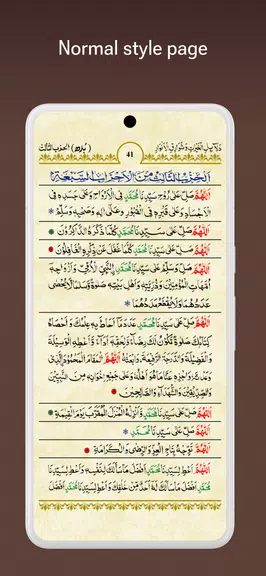 Normal style page
دلائل الخيرات وشوارق الأنوار
41
(بدھ) الحزب الثالث
الحزب الثالث من الاحزاب السبعة
اَللّٰهُمَّ صَلِّ عَلٰى رُوْحِ سَيِّدِنَا مُحَمَّدٍ فِي الْاَرْوَاحِ وَعَلٰى جَسَدِهٖ فِي
الْاَجْسَادِ وَعَلٰى قَبْرِهٖ فِي الْقُبُوْرِ وَعَلٰى اٰلِهٖ وَصَحْبِهٖ وَسَلِّمْ
اَللّٰهُمَّ صَلِّ عَلٰى سَيِّدِنَا مُحَمَّدٍ كُلَّمَا ذَكَرَهُ الذَّاكِرُوْنَ
اَللّٰهُمَّ صَلِّ عَلٰى سَيِّدِنَا مُحَمَّدٍ كُلَّمَا غَفَلَ عَنْ ذِكْرِهِ الْغَافِلُوْنَ
اَللّٰهُمَّ صَلِّ وَسَلِّمْ عَلٰى سَيِّدِنَا مُحَمَّدٍ النَّبِيِّ الْاُمِّيِّ وَاَزْوَاجِهٖ
اُمَّهَاتِ الْمُؤْمِنِيْنَ وَذُرِّيَّتِهٖ وَاَهْلِ بَيْتِهٖ صَلٰوةً وَسَلَامًا لَا يُحْصٰى
عَدَدُهُمَا وَلَا يُقْطَعُ مَدَدُهُمَا
اَللّٰهُمَّ صَلِّ عَلٰى سَيِّدِنَا مُحَمَّدٍ عَدَدَ مَا اَحَاطَ بِهٖ عِلْمُكَ وَاَحْصَاهُ
كِتَابُكَ صَلٰوةً تَكُوْنُ لَكَ رِضَاءً وَلِحَقِّهٖ اَدَاءً وَاَعْطِهِ الْوَسِيْلَةَ
وَالْفَضِيْلَةَ وَالدَّرَجَةَ الرَّفِيْعَةَ وَابْعَثْهُ اَللّٰهُمَّ الْمَقَامَ الْمَحْمُوْدَ الَّذِيْ
وَعَدْتَهٗ وَاجْزِهٖ عَنَّا مَا هُوَ اَهْلُهٗ وَعَلٰى جَمِيْعِ اِخْوَانِهٖ مِنَ النَّبِيِّيْنَ
وَالصِّدِّيْقِيْنَ وَالشُّهَدَاءِ وَالصَّالِحِيْنَ
اَللّٰهُمَّ صَلِّ عَلٰى سَيِّدِنَا مُحَمَّدٍ وَاَنْزِلْهُ الْمُنْزَلَ الْمُقَرَّبَ يَوْمَ الْقِيٰمَةِ
اَللّٰهُمَّ صَلِّ عَلٰى سَيِّدِنَا مُحَمَّدٍ
اَللّٰهُمَّ تَوِّجْهُ بِتَاجِ الْعِزِّ وَالرِّضٰى وَالْكَرَامَةِ
اَللّٰهُمَّ اَعْطِ لِسَيِّدِنَا مُحَمَّدٍ اَفْضَلَ مَا سَاَلَكَ لِنَفْسِهٖ وَاَعْطِ لِسَيِّدِنَا
مُحَمَّدٍ اَفْضَلَ مَا سَاَلَكَ لَهٗ اَحَدٌ مِّنْ خَلْقِكَ وَاَعْطِ لِسَيِّدِنَا مُحَمَّدٍ اَفْضَلَ